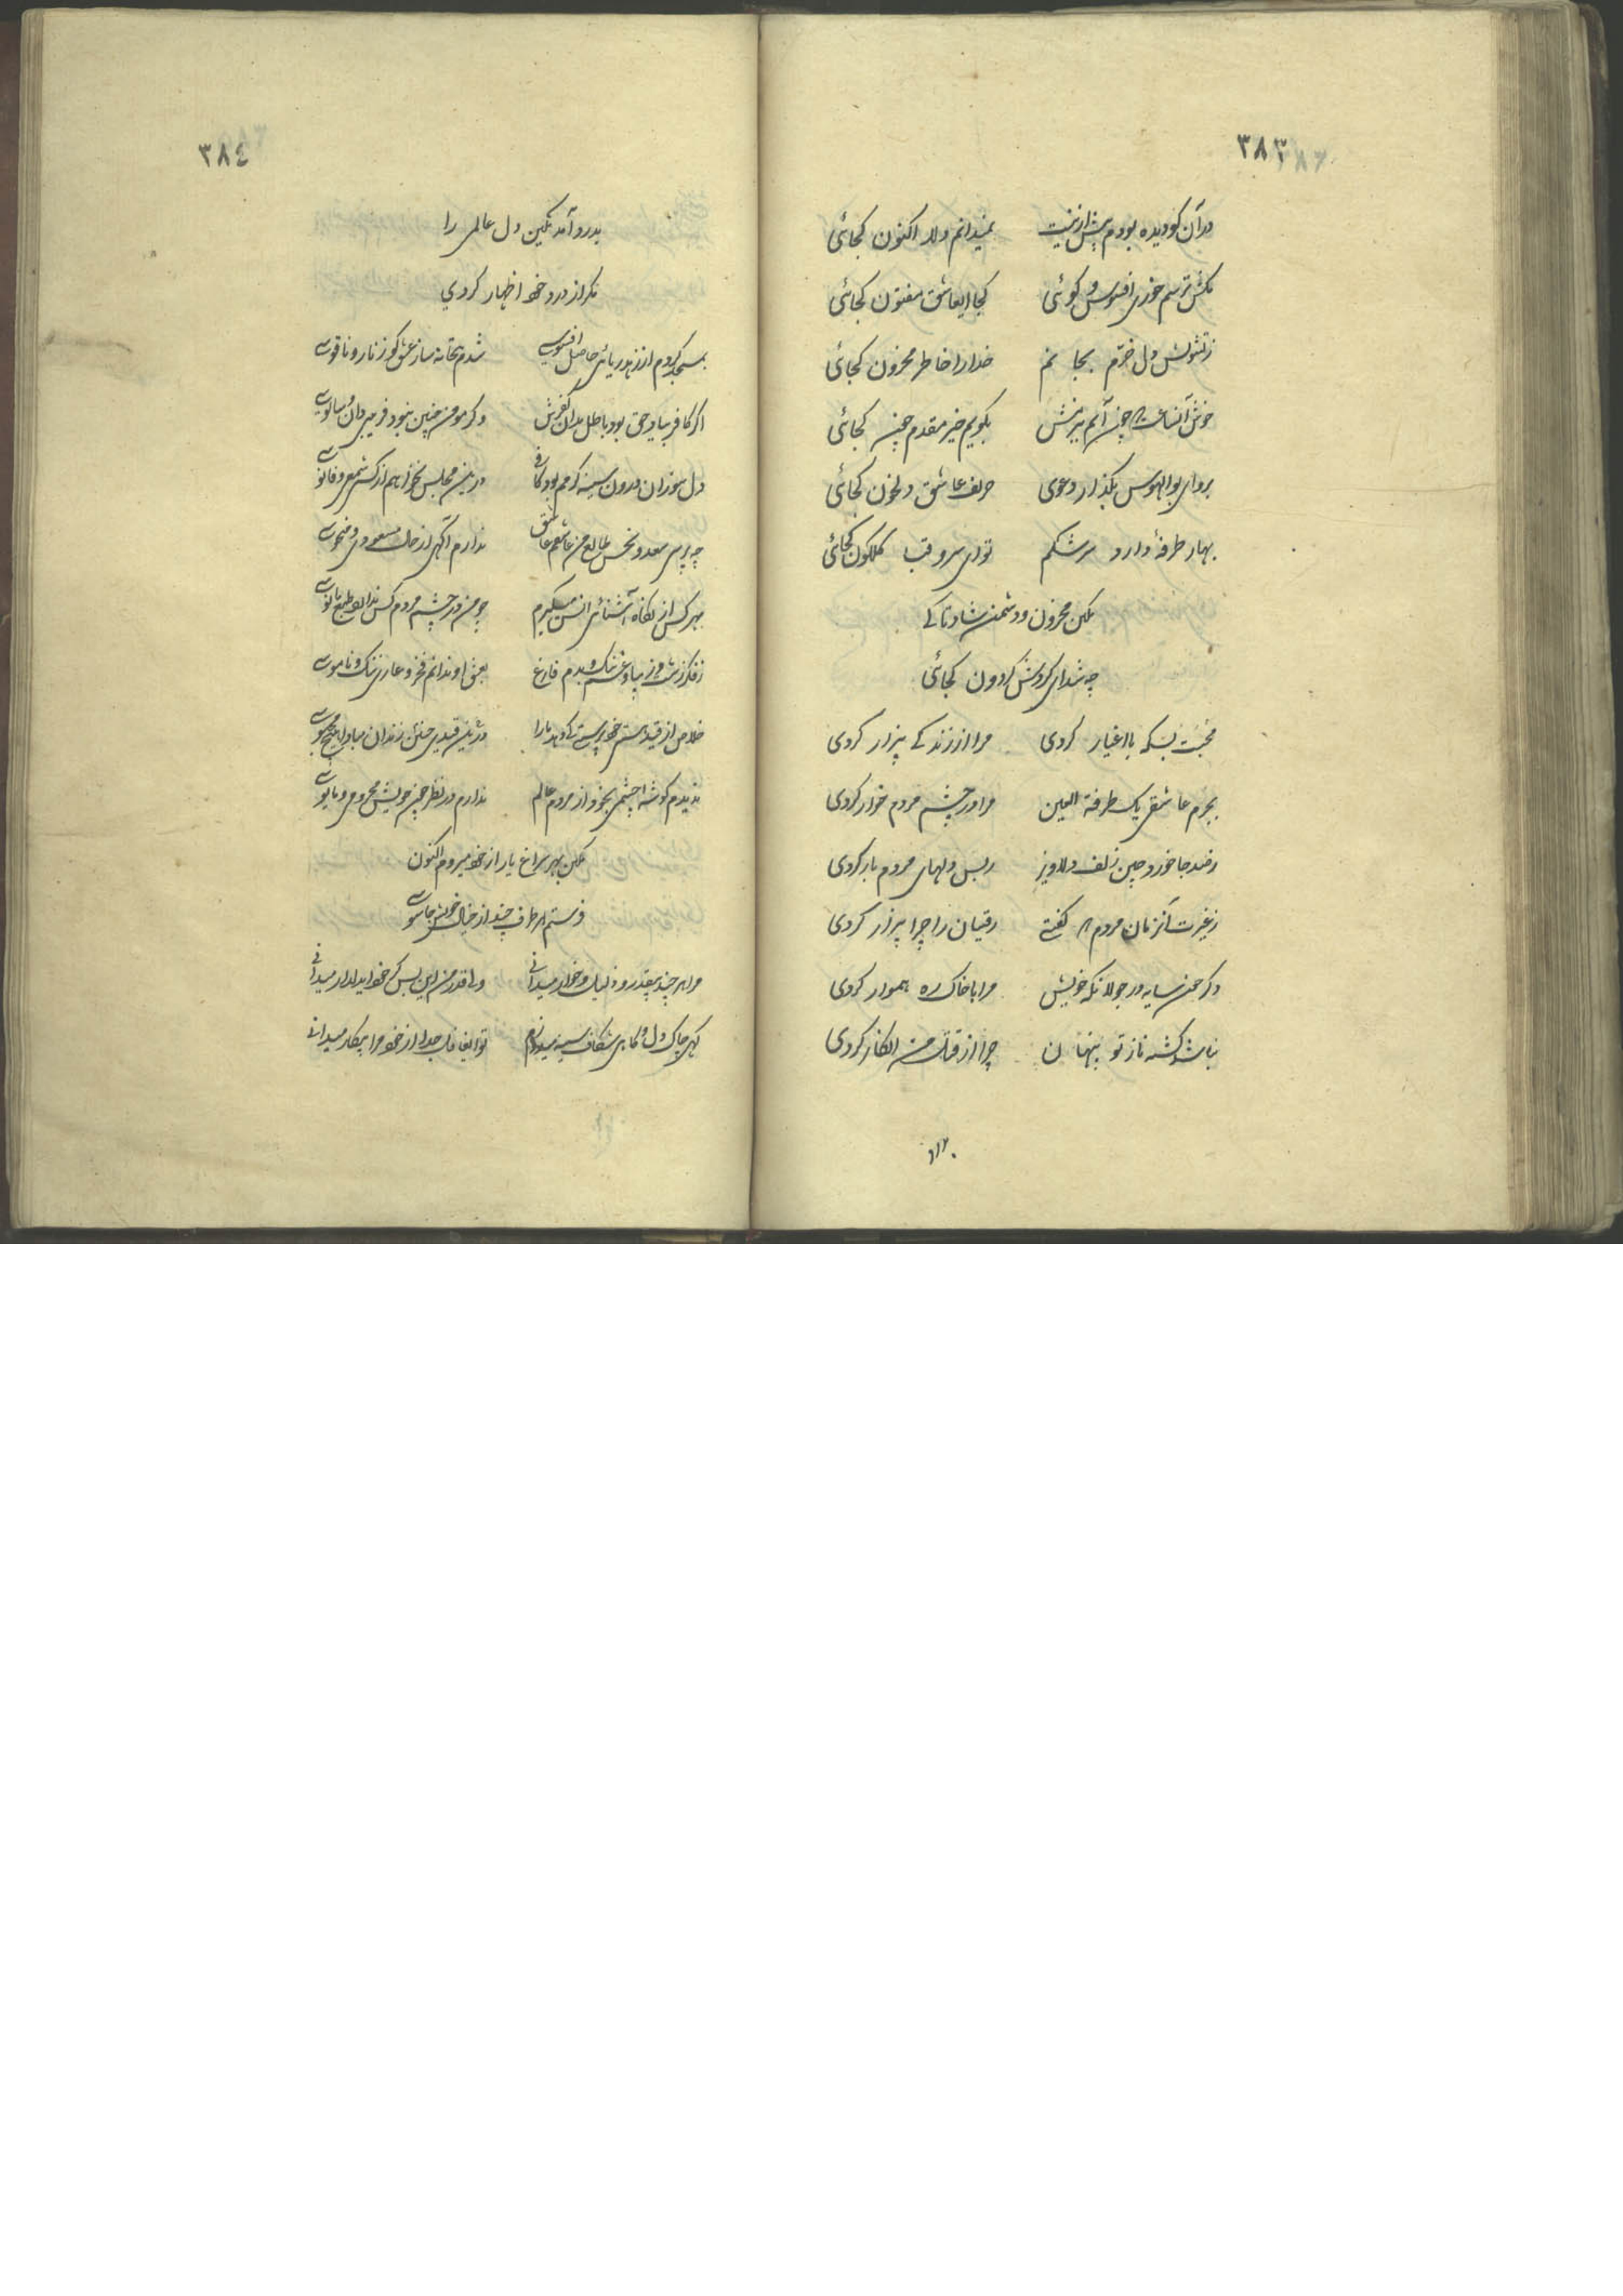 ۳۸۳
در آن کو دیده بودم پیش ازینت نمیدانم دلا اکنون کجائی
مکش ترسم خوری افسوس و کوئی کجا ایعاشق مفتون کجائی
ز تشویش دل خرم بجا نم خدا را خاطر محزون کجائی
خوش آنساعت که چون آیم ببزمش بکویم خیر مقدم چون کجائی
برو ای بوالهوس بکذار دعوی حریف عاشق دلخون کجائی
بهار طرفهٔ دارد سرشکم تو ای سرو قبا کلکون کجائی
مکین محزون و دشمن شاد تا کے
چه شد ای کردش کردون کجائی
محبت بسکه با اغیار کردی مرا از زندکے بیزار کردی
بجرم عاشقی یک طرفة العین مرا در چشم مردم خوار کردی
جا خورد چین زلف دلاویز ز بس دلهای مردم بار کردی
ز غیرت آنزمان مردم که کفتے رقیبان را چرا بیزار کردی
و کر چون سایه در جولانکه خویش مرا با خاک ره هموار کردی
نباشد کشته ناز تو پنهان چرا از قتل من انکار کردی
۳۸٤
بدرد آمد مکین دل عالمی را
مکر از درد خود اظهار کردی
بمسجد کردم از زهد ریائی حاصل افسوسے شدم بتخانه ساز عشق کو زنار و ناقوسے
اکر کافر بیاد حق بود باطل مدان کفرش و کر مومن چنین نبود فریبی دان و سالوسے
دل سوزان درون سینه کرمم بود کافی درین مجلس نخواهم از کسے شمعی و فانوسے
چه پرسی سعد و نحس طالع من عاشقم عاشق ندارم آکهی از حال مسعودی و منحوسے
بهر کس از نکاه آشنائی انس میکیرم چو من در چشم مردم کس ندارد طبع مانوسے
ز فکر زشت و زیبا و غم نیک و بدم فارغ بعشق او ندانم فخر و عاری ننک و ناموسے
خلاص از قید هستے خودپرستے کے دهد ما را درین قیدی چنین زندان مبادا هیچ محبوسے
ندیدم کوشه چشمی بخود از مردم عالم ندارم در نظر چون خویش محرومی و مایوسے
مکین بهر سراغ یار از خود میروم اکنون
فرستم هر طرف چند از خیال خویش جاسوسے
مرا هر چند بیقدر و ذلیل و خوار میدانی ولے قدر من این بس کز خود ایدلدار میدانی
کهی چاک دل و کاهی شکاف سینه میدوزم تو ایغافل جدا از خود مرا بیکار میدانے